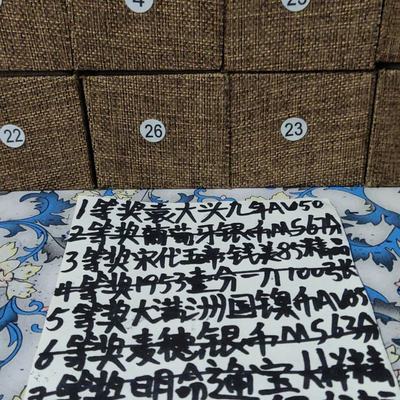 4
25
22
26
23
1等奖袁大头九年AU50
2等奖葡萄牙银币MS63分
3等奖宋代五帝钱美85精品
4等奖1953壹分一刀100张
5等奖大满洲国镍币AU05
6等奖麦穗银币MS62分
等奖明命通宝大样精